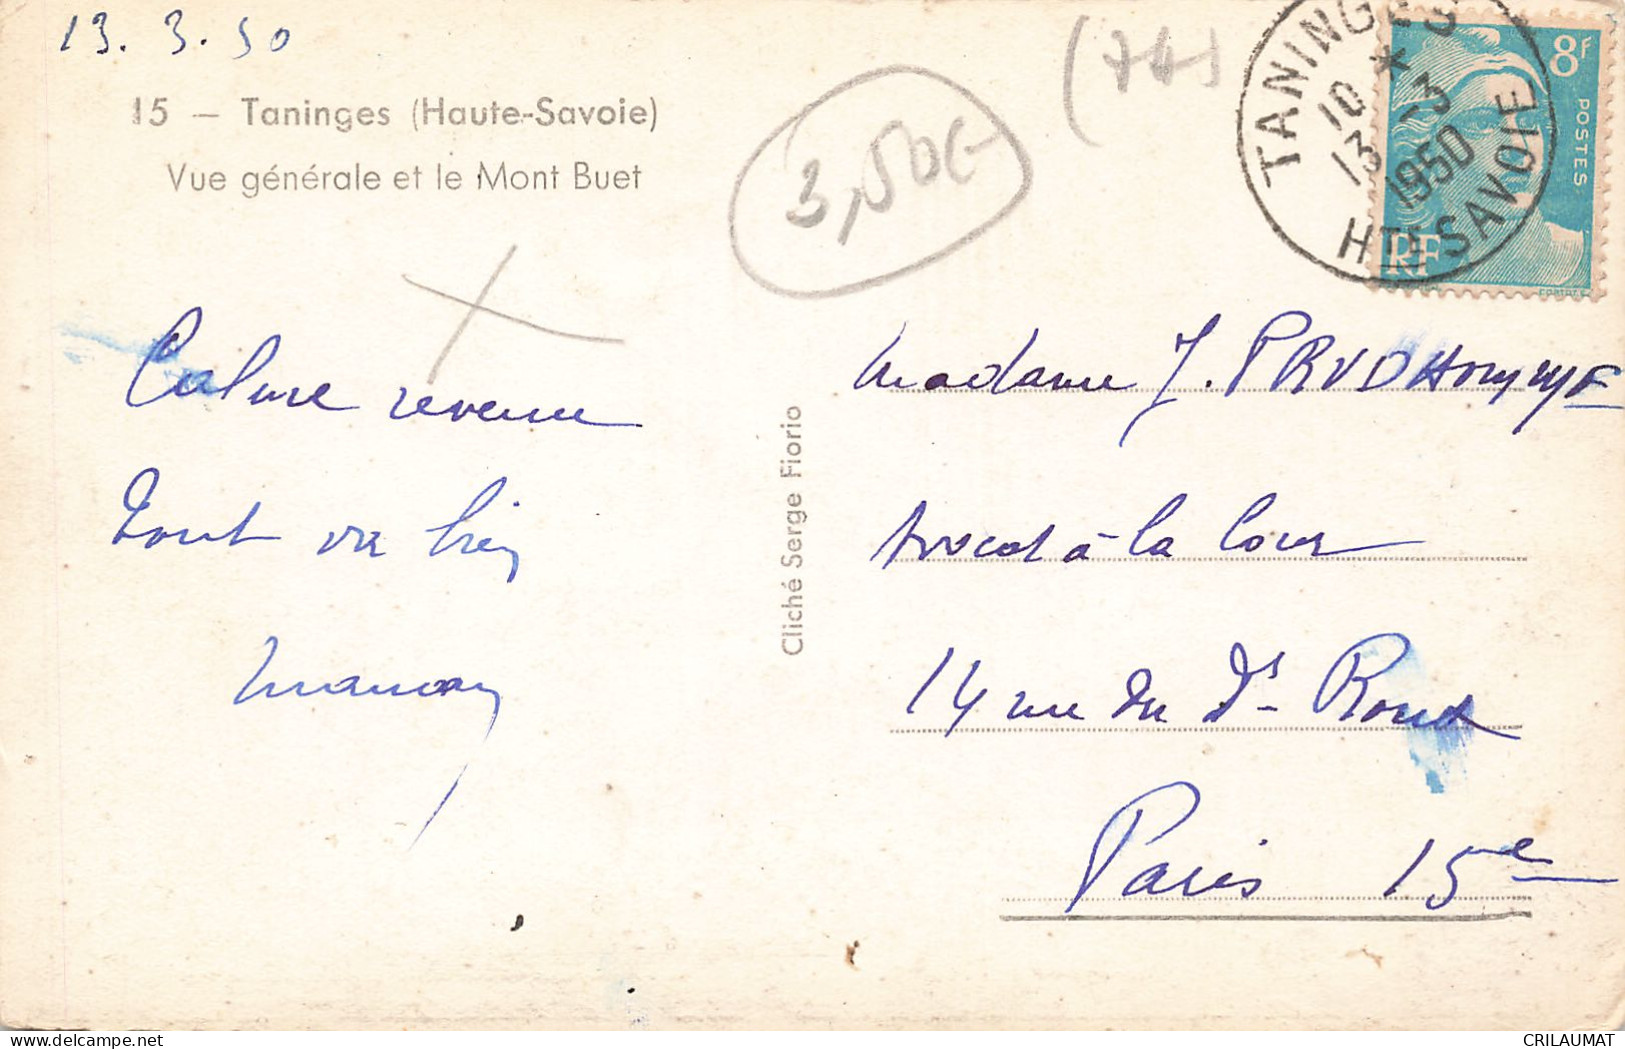 13. 3. 50
15 – Taninges (Haute-Savoie)
Vue générale et le Mont Buet
3,50€
(74)
TANINGES
10 *
13 -3
1950
HTE SAVOIE
8F
POSTES
RF
Calme revenu
Tout va bien
maman
Cliché Serge Fiorio
Madame J. PRUDHOMME
Avocat à la Cour
14 rue du Dr Roux
Paris 15e
CRILAUMAT
delcampe.net